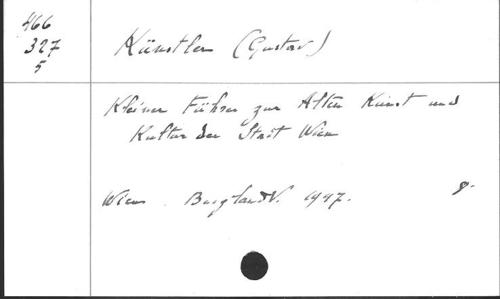 466
327
5
Künstler (Gustav)
Kleiner Führer zur Alten Kunst und
Kultur der Stadt Wien
Wien. Bergland V. 1947. 8.